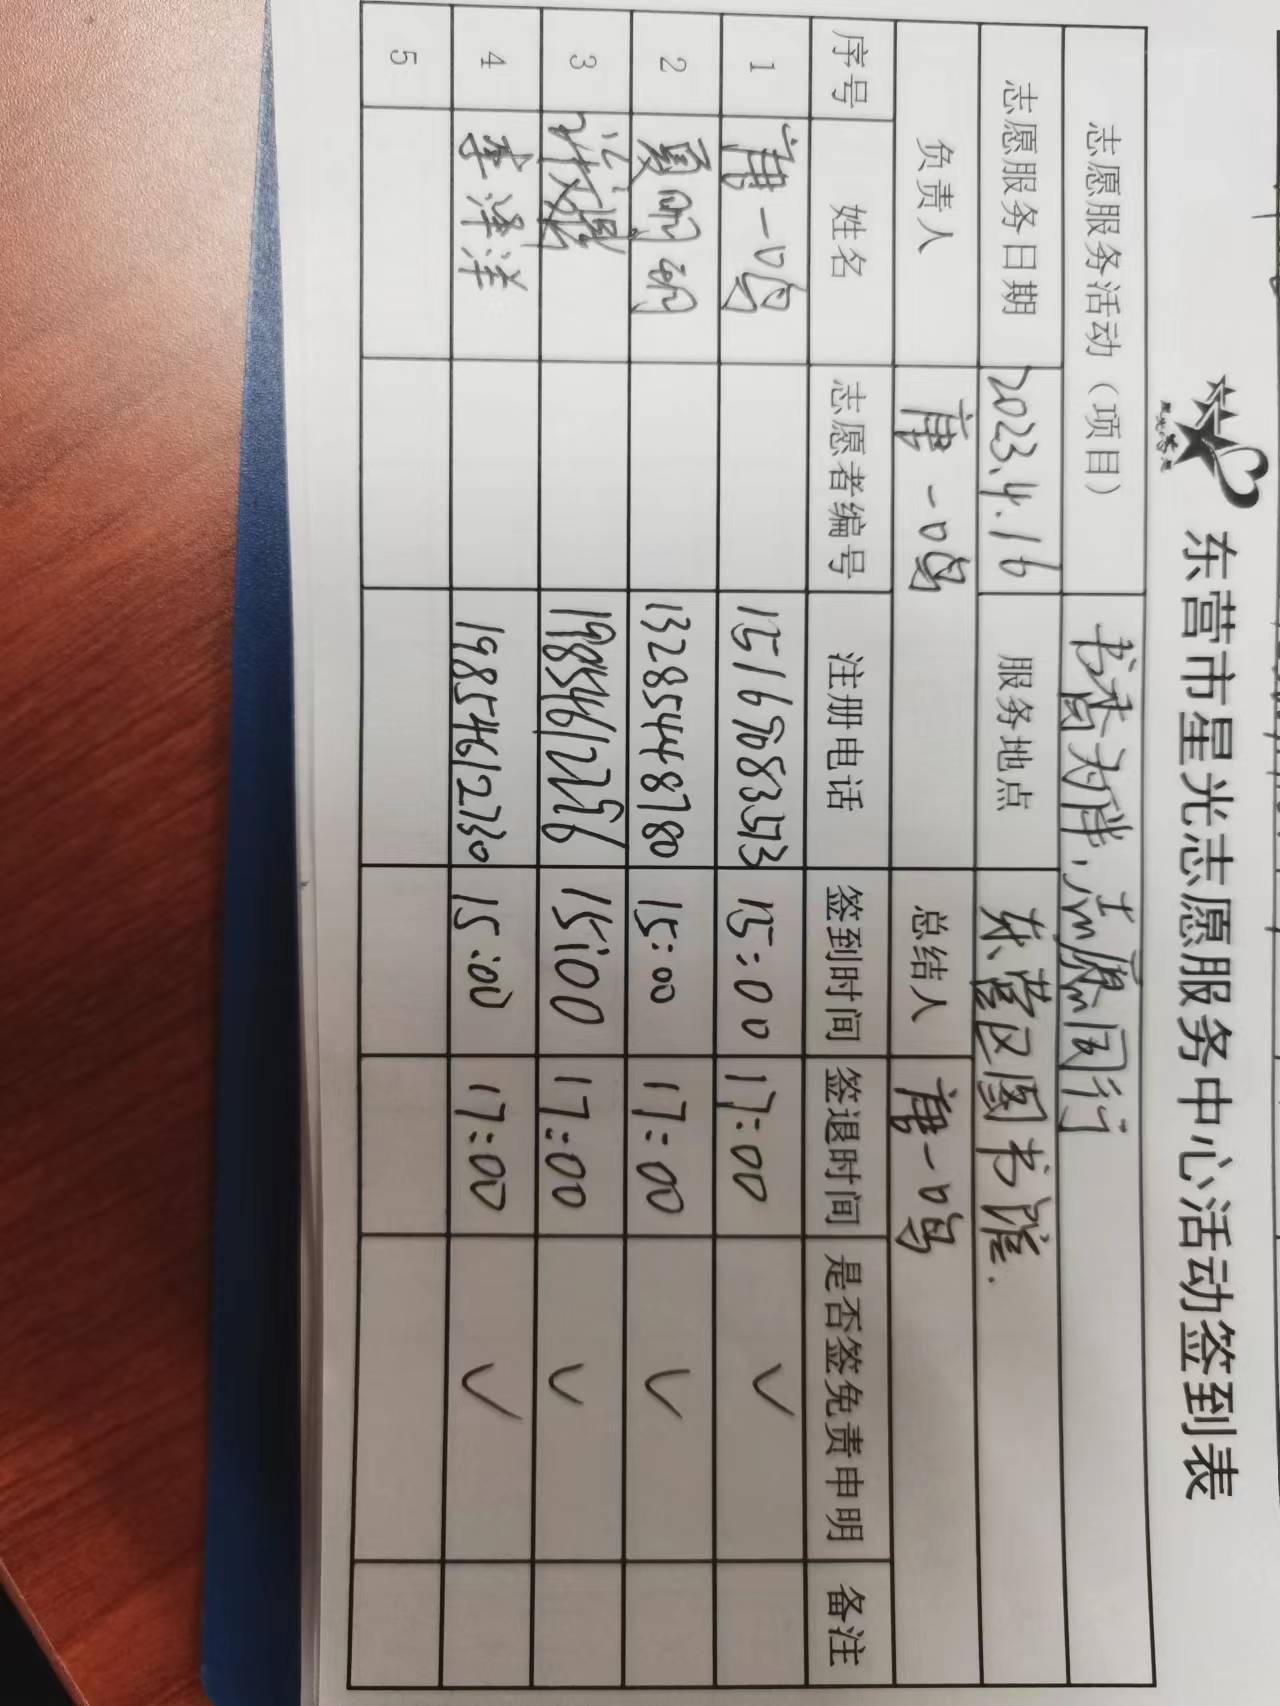 东营市星光志愿服务中心活动签到表
志愿服务活动（项目） 书香为伴，志愿同行
志愿服务日期 2023.4.16 服务地点 东营区图书馆.
负责人 唐一鸣 总结人 唐一鸣
序号 姓名 志愿者编号 注册电话 签到时间 签退时间 是否签免责申明 备注
1 唐一鸣 15169083573 15:00 17:00 ✓
2 夏明明 13285448780 15:00 17:00 ✓
3 15:00 17:00 ✓
4 李泽洋 19854612730 15:00 17:00 ✓
5